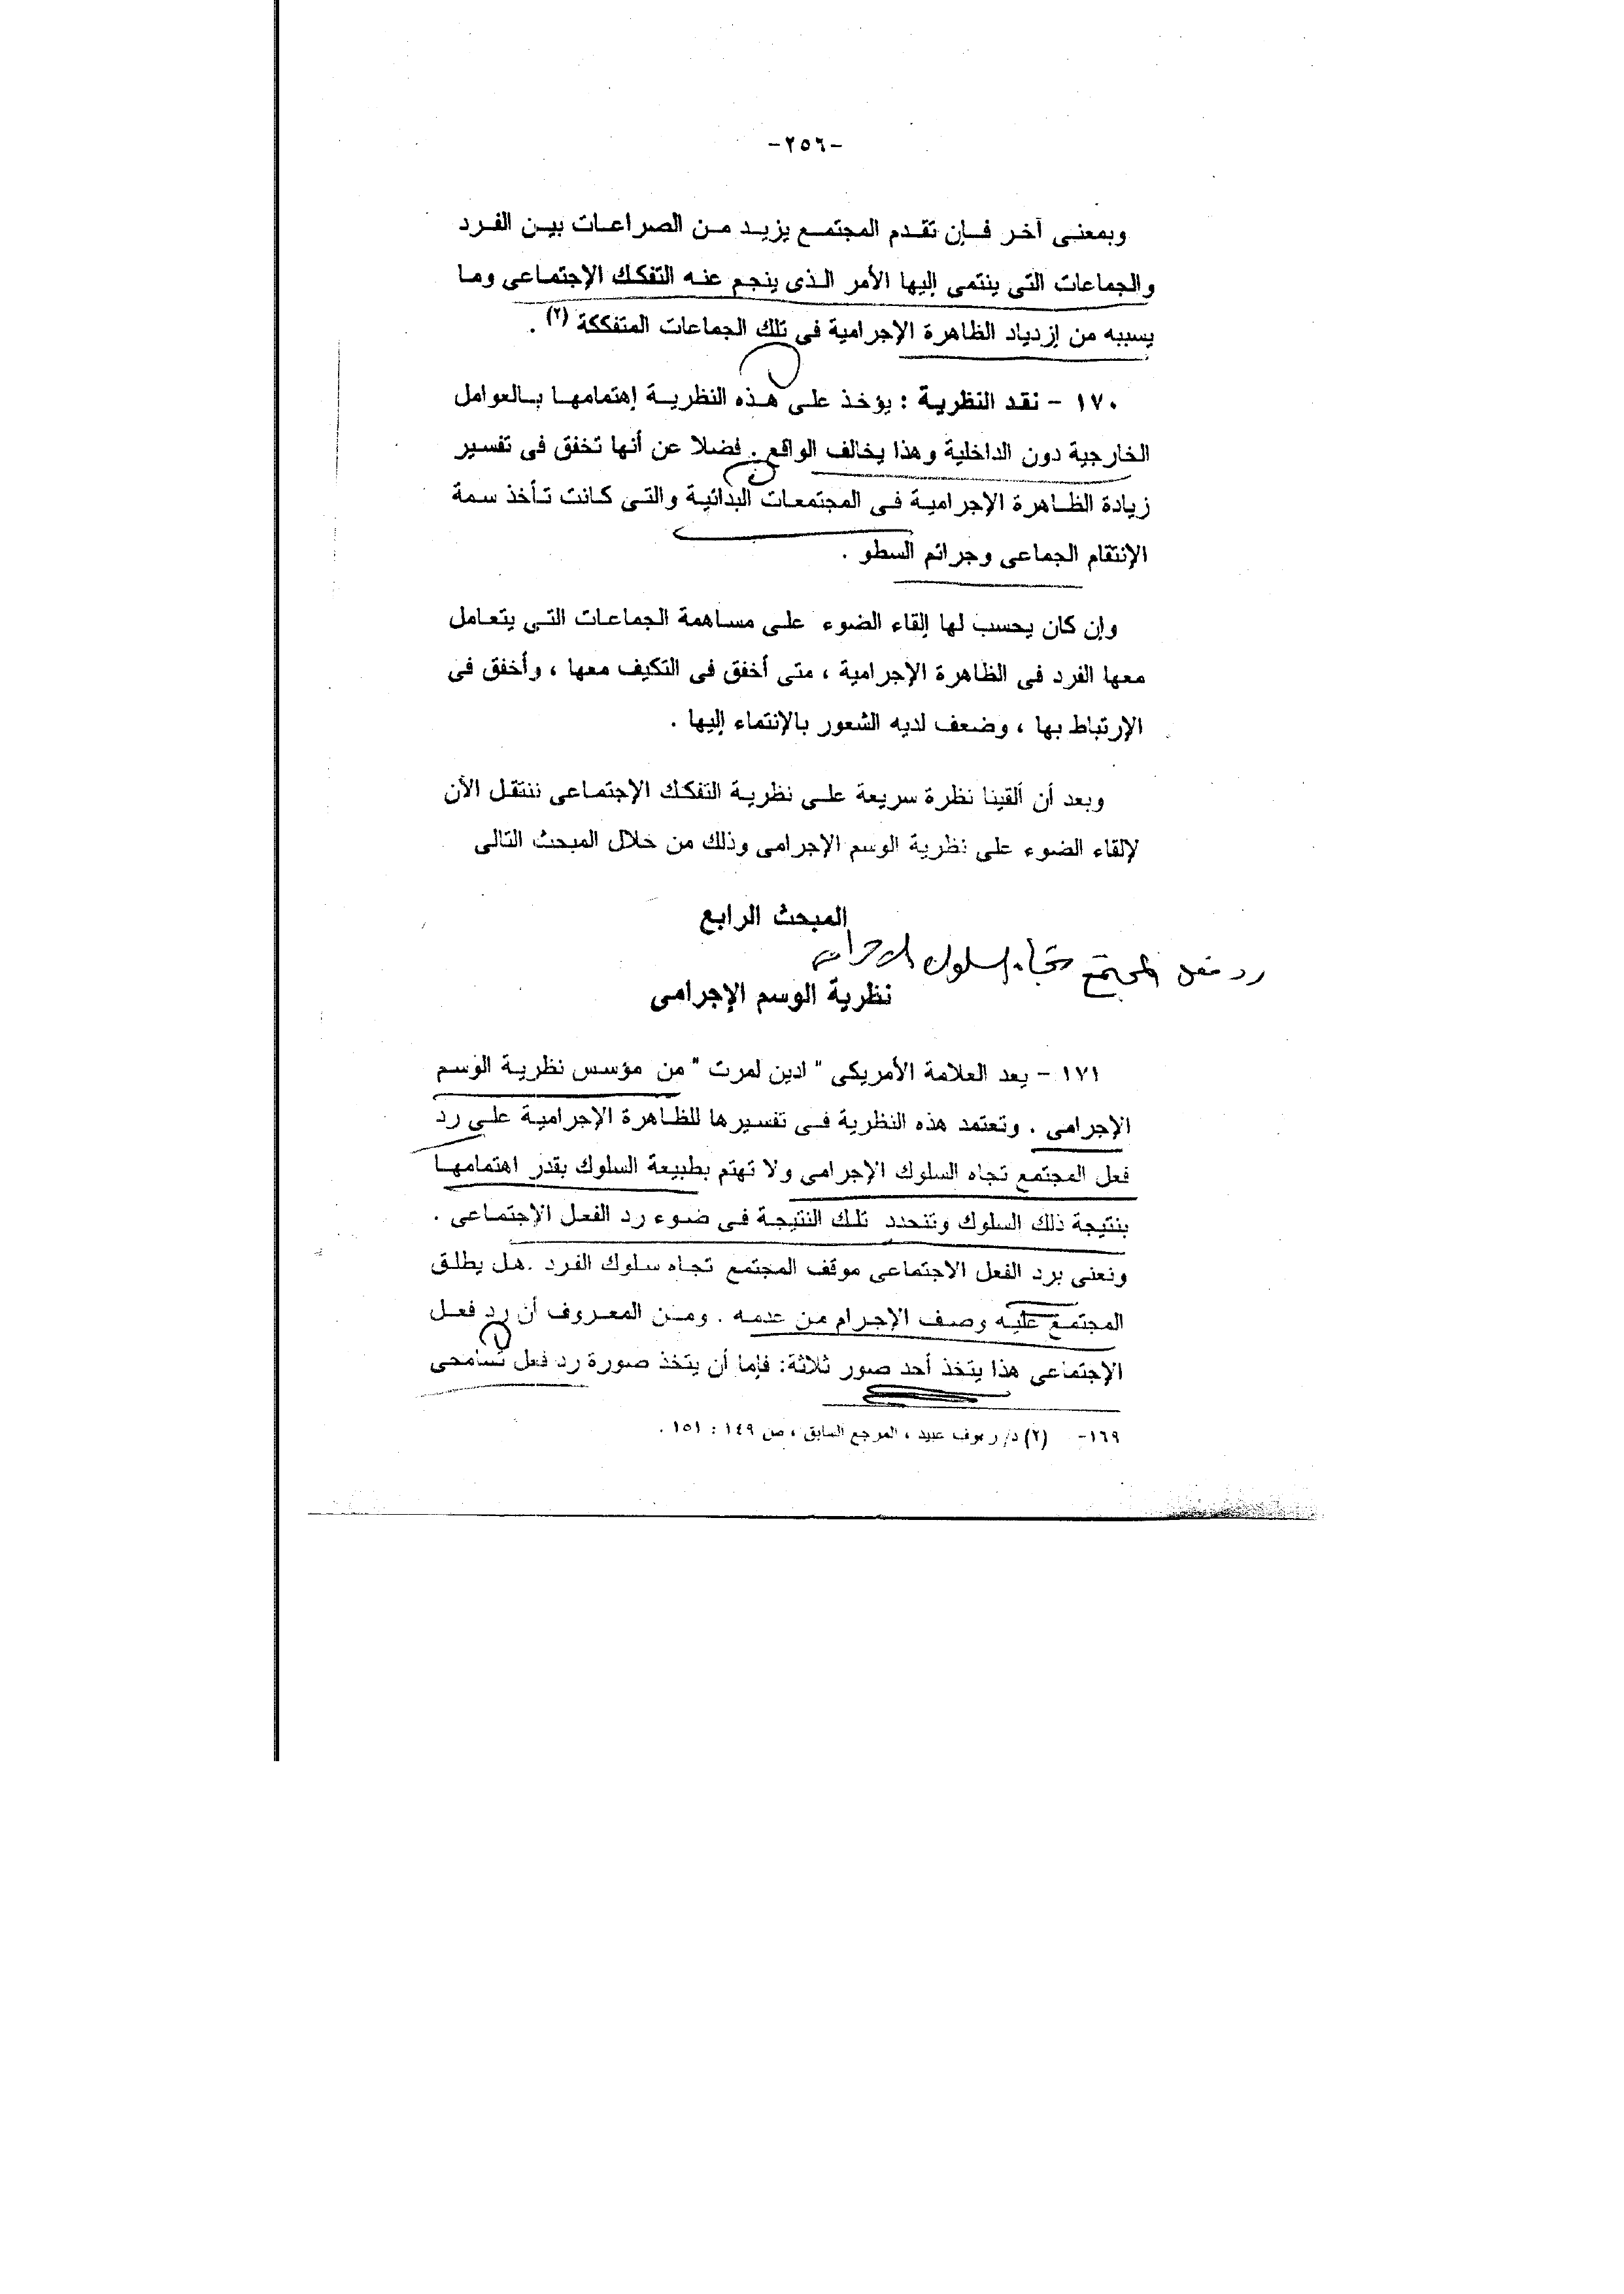 -٢٥٦-
وبمعنى آخر فإن تقدم المجتمع يزيد من الصراعات بين الفرد
والجماعات التى ينتمى إليها الأمر الذى ينجم عنه التفكك الإجتماعى وما
يسببه من إزدياد الظاهرة الإجرامية فى تلك الجماعات المتفككة (٢) .
١٧٠ - نقد النظرية : يؤخذ على هذه النظرية إهتمامها بالعوامل
الخارجية دون الداخلية وهذا يخالف الواقع . فضلا عن أنها تخفق فى تفسير
زيادة الظاهرة الإجرامية فى المجتمعات البدائية والتى كانت تأخذ سمة
الإنتقام الجماعى وجرائم السطو .
وإن كان يحسب لها إلقاء الضوء على مساهمة الجماعات التى يتعامل
معها الفرد فى الظاهرة الإجرامية ، متى أخفق فى التكيف معها ، وأخفق فى
الإرتباط بها ، وضعف لديه الشعور بالإنتماء إليها .
وبعد أن ألقينا نظرة سريعة على نظرية التفكك الإجتماعى ننتقل الأن
لإلقاء الضوء على نظرية الوسم الإجرامى وذلك من خلال المبحث التالى
المبحث الرابع
رد فعل المجتمع تجاه السلوك الاجرامى
نظرية الوسم الإجرامى
١٧١ - يعد العلامة الأمريكى " ادين لمرت " من مؤسس نظرية الوسم
الإجرامى . وتعتمد هذه النظرية فى تفسيرها للظاهرة الإجرامية على رد
فعل المجتمع تجاه السلوك الإجرامى ولا تهتم بطبيعة السلوك بقدر اهتمامها
بنتيجة ذلك السلوك وتتحدد تلك النتيجة فى ضوء رد الفعل الإجتماعى .
ونعنى برد الفعل الاجتماعى موقف المجتمع تجاه سلوك الفرد .هل يطلق
المجتمع عليه وصف الإجرام من عدمه . ومن المعروف أن رد فعل
الإجتماعى هذا يتخذ أحد صور ثلاثة: فإما أن يتخذ صورة رد فعل تسامحى
١٦٩- (٢) د/ رءوف عبيد ، المرجع السابق ، ص ١٤٩ : ١٥١ .